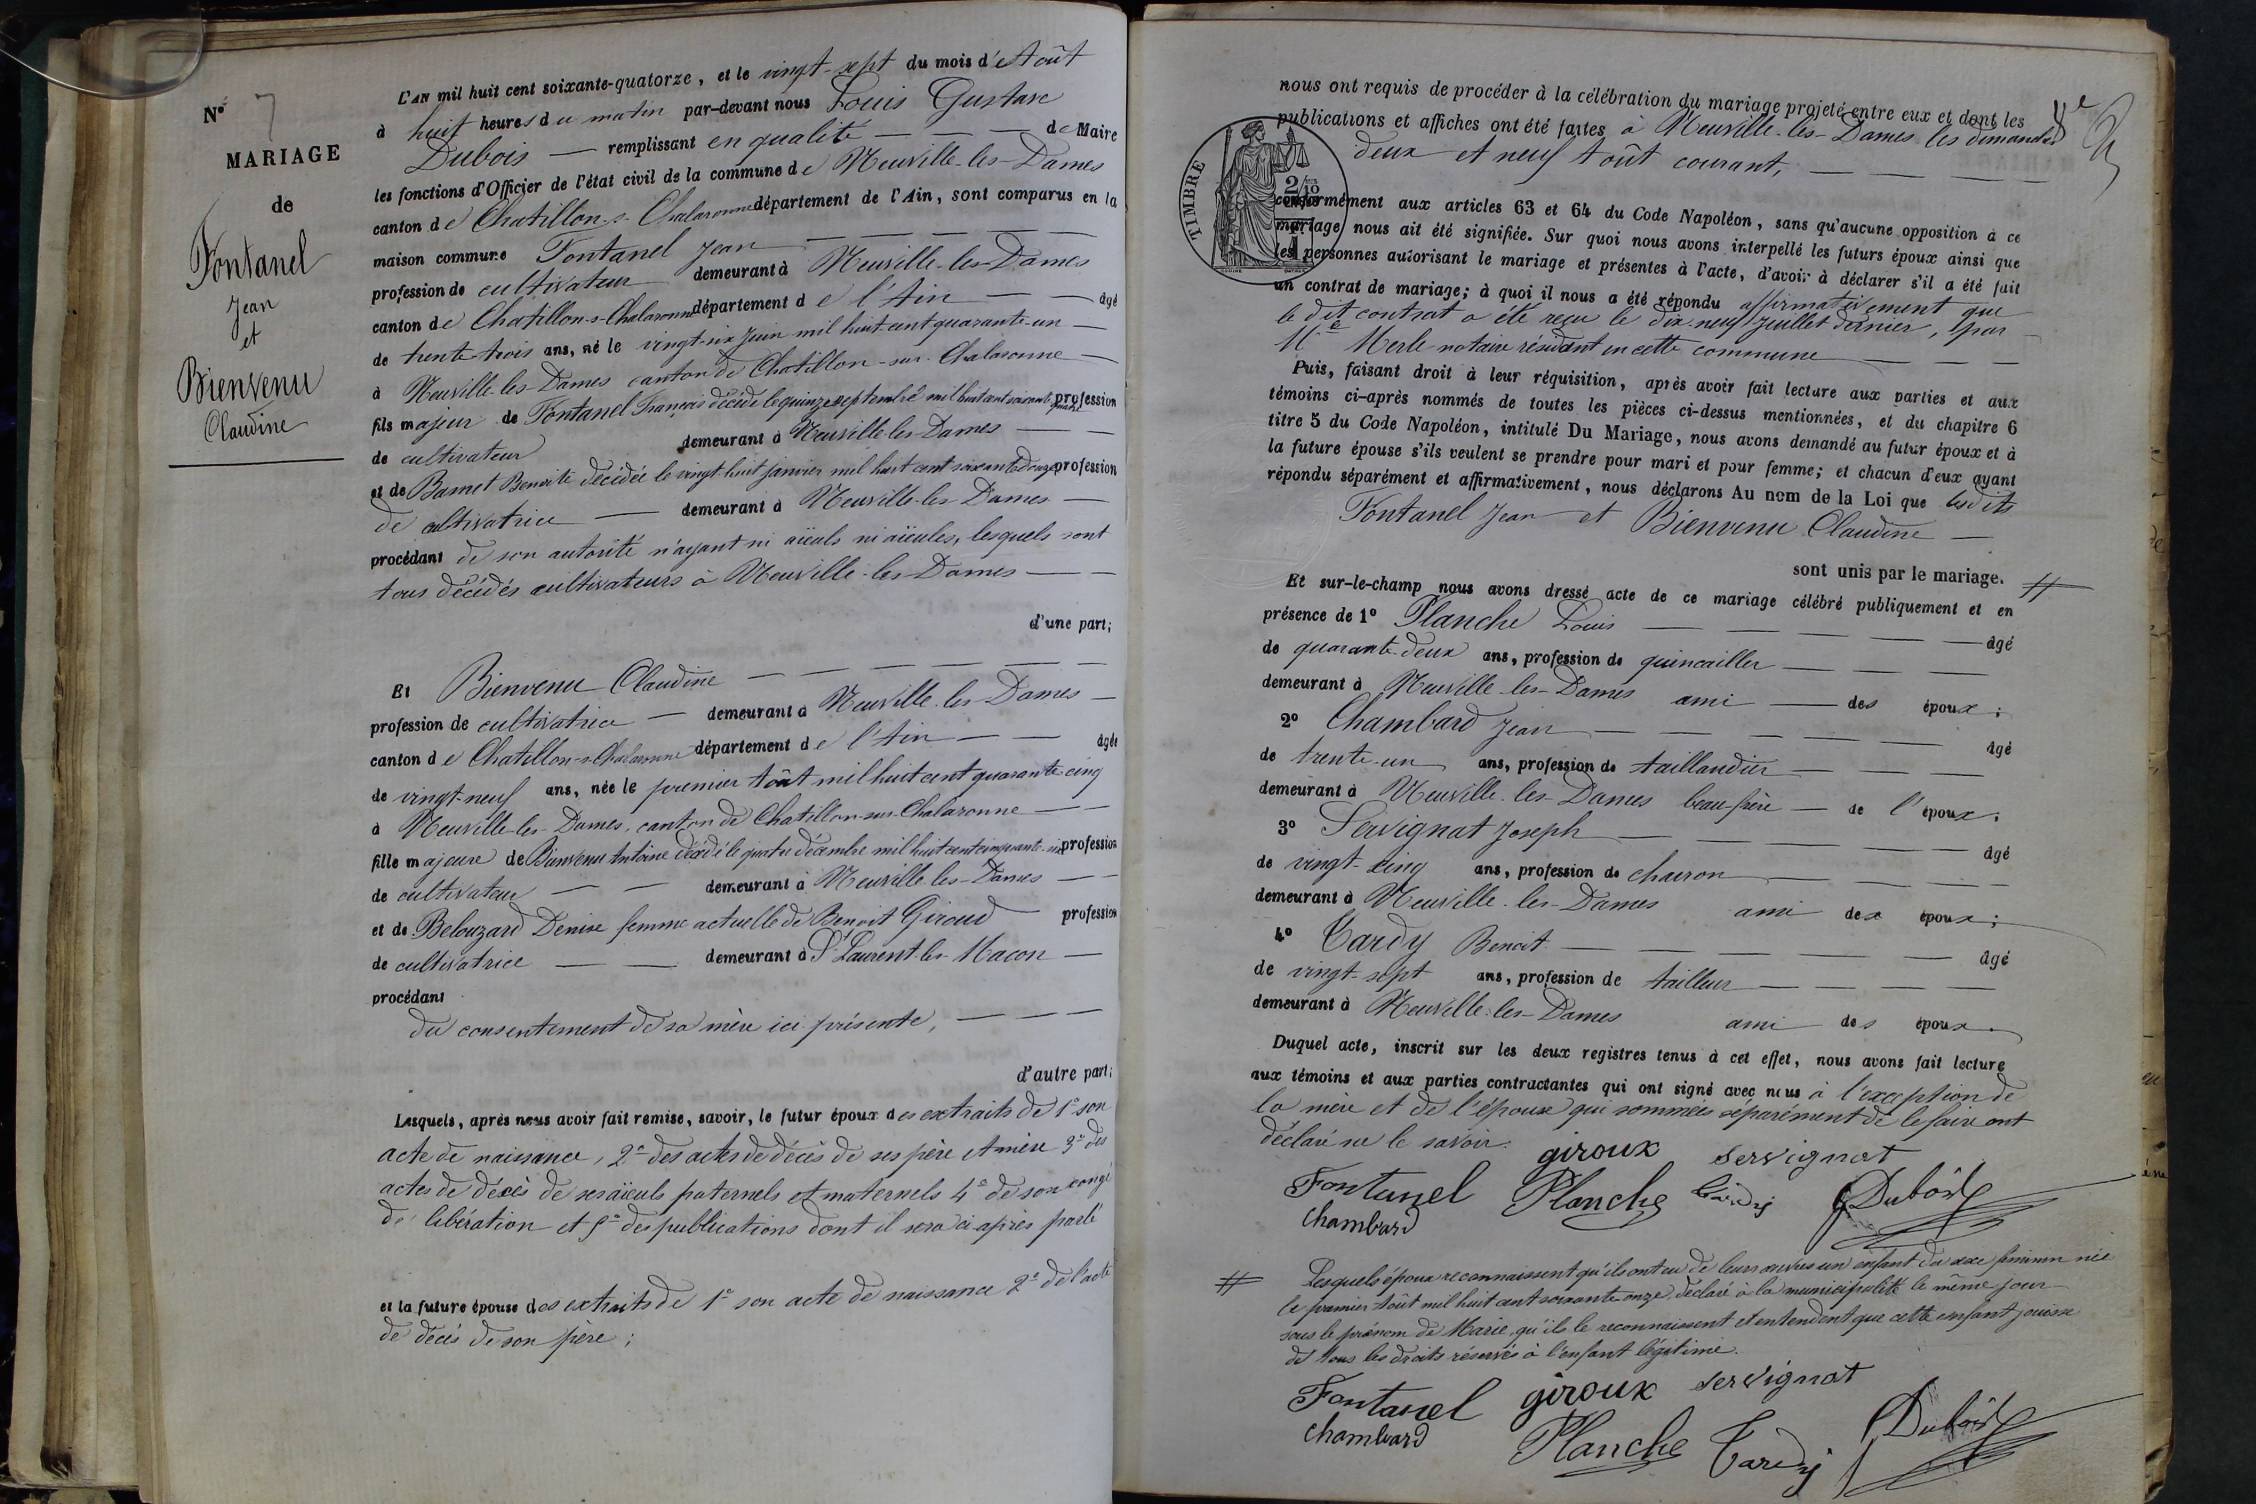 N° 7
MARIAGE
de
Fontanel
Jean
et
Bienvenu
Claudine
L'AN mil huit cent soixante-quatorze, et le vingt-sept du mois d'Août
à huit heures du matin par-devant nous Louis Gustave
Dubois — remplissant en qualité — — — de Maire
les fonctions d'Officier de l'état civil de la commune de Neuville-les-Dames
canton de Chatillon-s-Chalaronne département de l'Ain, sont comparus en la
maison commune Fontanel Jean — — — — —
profession de cultivateur demeurant à Neuville-les-Dames
canton de Chatillon-s-Chalaronne département de l'Ain — — âgé
de trente-trois ans, né le vingt-six Juin mil huit cent quarante-un —
à Neuville-les-Dames canton de Chatillon-sur-Chalaronne —
fils majeur de Fontanel François décédé le quinze septembre mil huit cent soixante profession
de cultivateur demeurant à Neuville-les-Dames — —
et de Barnet Benoite décédée le vingt huit janvier mil huit cent soixante douze profession
de cultivatrice — demeurant à Neuville-les-Dames —
procédant de son autorité n'ayant ni aïeuls ni aïeules, lesquels sont
tous décédés cultivateurs à Neuville-les-Dames — —
d'une part;
Et Bienvenu Claudine — — — — — —
profession de cultivatrice — demeurant à Neuville-les-Dames —
canton de Chatillon-s-Chalaronne département de l'Ain — — âgée
de vingt-neuf ans, née le premier Août mil huit cent quarante-cinq
à Neuville-les-Dames, canton de Chatillon-sur-Chalaronne — —
fille majeure de Bienvenu Antoine décédé le quatre décembre mil huit cent cinquante-six profession
de cultivateur — — demeurant à Neuville-les-Dames — —
et de Belouzard Denise femme actuelle de Benoit Giroud — profession
de cultivatrice — — demeurant à St Laurent-les-Macon —
procédant
du consentement de sa mère ici présente, — — —
d'autre part;
Lesquels, après nous avoir fait remise, savoir, le futur époux des extraits de 1° son
acte de naissance, 2° des actes de décès de ses père et mère 3° des
actes de décès de ses aïeuls paternels et maternels 4° de son congé
de libération et 5° des publications dont il sera ci-après parlé
et la future épouse des extraits de 1° son acte de naissance 2° de l'acte
de décès de son père;
nous ont requis de procéder à la célébration du mariage projeté entre eux et dont les
publications et affiches ont été faites à Neuville-les-Dames les dimanches
deux et neuf Août courant, — — — —
TIMBRE
2/10
conformément aux articles 63 et 64 du Code Napoléon, sans qu'aucune opposition à ce
mariage nous ait été signifiée. Sur quoi nous avons interpellé les futurs époux ainsi que
les personnes autorisant le mariage et présentes à l'acte, d'avoir à déclarer s'il a été fait
un contrat de mariage; à quoi il nous a été répondu affirmativement que
le dit contrat a été reçu le dix-neuf Juillet dernier, par
Me Merle notaire résidant en cette commune — — —
Puis, faisant droit à leur réquisition, après avoir fait lecture aux parties et aux
témoins ci-après nommés de toutes les pièces ci-dessus mentionnées, et du chapitre 6
titre 5 du Code Napoléon, intitulé Du Mariage, nous avons demandé au futur époux et à
la future épouse s'ils veulent se prendre pour mari et pour femme; et chacun d'eux ayant
répondu séparément et affirmativement, nous déclarons Au nom de la Loi que lesdits
Fontanel Jean et Bienvenu Claudine —
sont unis par le mariage. #
Et sur-le-champ nous avons dressé acte de ce mariage célébré publiquement et en
présence de 1° Planche Louis — — — — — — âgé
de quarante-deux ans, profession de quincailler — — —
demeurant à Neuville-les-Dames ami — des époux;
2° Chambard Jean — — — — — — âgé
de trente-un ans, profession de taillandier — — —
demeurant à Neuville-les-Dames beau-frère — de l'époux;
3° Servignat Joseph — — — — — âgé
de vingt-cinq ans, profession de charron — — —
demeurant à Neuville-les-Dames ami des époux;
4° Tardy Benoit — — — — — âgé
de vingt-sept ans, profession de tailleur — — — —
demeurant à Neuville-les-Dames ami des époux.
Duquel acte, inscrit sur les deux registres tenus à cet effet, nous avons fait lecture
aux témoins et aux parties contractantes qui ont signé avec nous à l'exception de
la mère et de l'épouse qui sommées séparément de le faire ont
déclaré ne le savoir. giroux servignat
Fontanel Planche Tardy Dubois
chambard
# Lesquels époux reconnaissent qu'ils ont eu de leurs œuvres un enfant du sexe féminin née
le premier Août mil huit cent soixante-onze, déclaré à la municipalité le même jour
sous le prénom de Marie, qu'ils le reconnaissent et entendent que cette enfant jouisse
de tous les droits réservés à l'enfant légitime.
Fontanel giroux servignat
chambard Planche Tardy Dubois